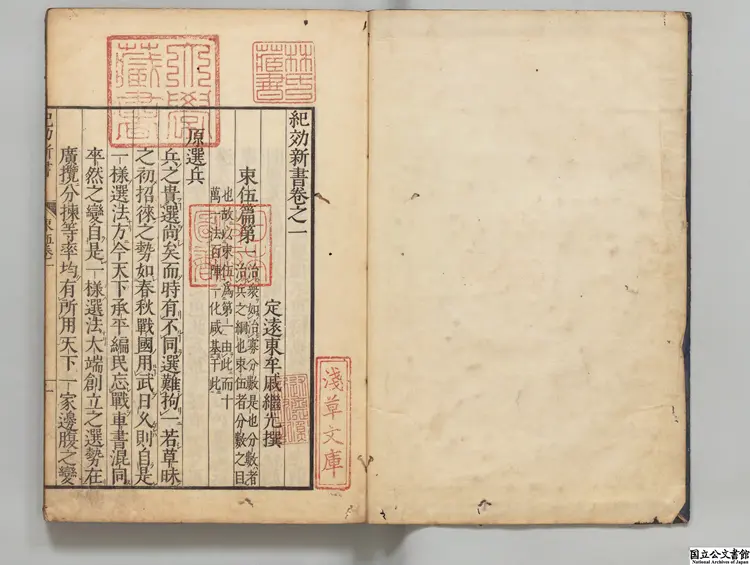 林氏
藏書
大學
藏書
淺草文庫
紀効新書卷之一
定遠東牟戚繼光撰
束伍篇第一
治衆如治寡分數是也分數者
治兵之綱也束伍者分數之目
也故以束伍爲第一由此而十
萬一法百陣一化咸基于此
原選兵
兵之貴選尚矣而時有不同選難拘一若草昧
之初招徠之勢如春秋戰國用武日久則自是
一樣選法方今天下承平編民忘戰車書混同
卒然之變自是一樣選法大端創立之選勢在
廣攬分揀等率均有所用天下一家邊腹之變
紀効新書
国立公文書館
National Archives of Japan